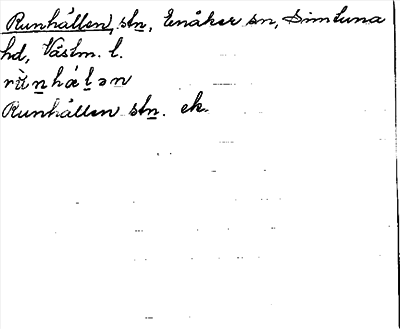 Runhällen, stn, Enåker sn, Simtuna
hd, Västm. l.
rùnhælən
Runhällen stn. ek.